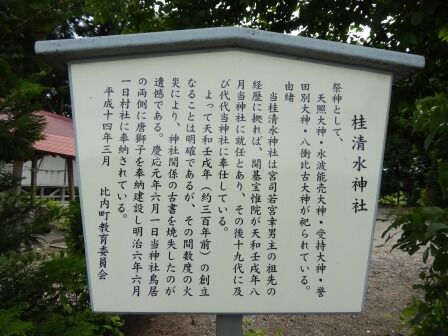 桂清水神社
祭神として、
天照大神・水波能売大神・受持大神・誉
田別大神・八衝比古大神が祀られている。
由緒
当桂清水神社は宮司若宮幸男主の祖先の
経歴に拠れば、開基宝惟院が天和壬戌年八
月当神社に就任とあり、その後十九代に及
び代代当神社に奉仕している。
よって天和壬戌年（約三百年前）の創立
なることは明確であるが、その間数度の火
災により、神社関係の古書を焼失したのが
遺憾である。慶応元年六月一日当神社鳥居
の両側に唐獅子を奉納建設し明治六年六月
一日村社に奉納されている。
平成十四年三月　比内町教育委員会